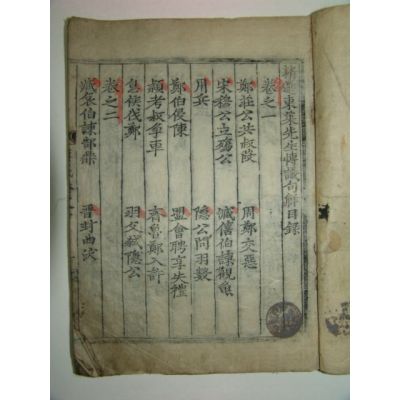 精選東萊先生博議句解目錄
卷之一
鄭莊公共叔段 周鄭交惡
宋穆公立殤公 臧僖伯諫觀魚
用兵 隱公問羽數
鄭伯侵陳 盟會聘享失禮
穎考叔爭車 齊魯鄭入許
息侯伐鄭 羽父弑隱公
卷之二
臧哀伯諫郜鼎 晋封曲沃